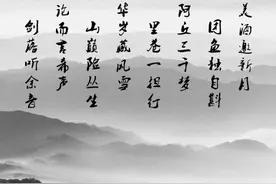 美酒邀新月
团独自斟
阿丘三千梦
里巷一担行
华岁藏风雪
山巅险丛生
论而言希声
剑落听余音